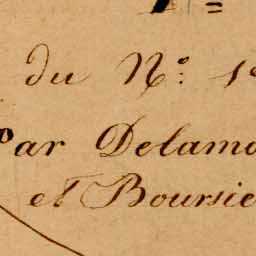 du N°: 1
Par Delamo
et Boursie